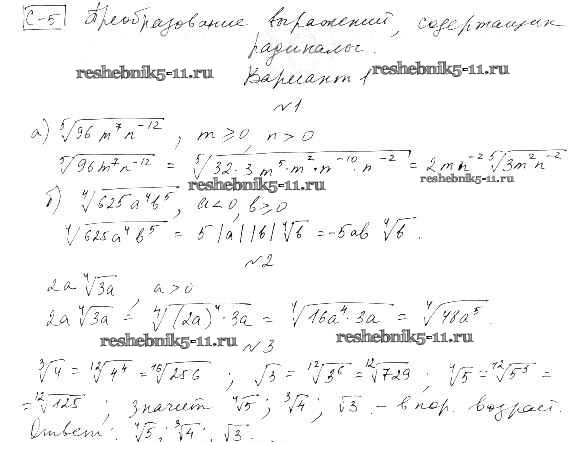 С-5 Преобразование выражений, содержащих
радикалы.
reshebnik5-11.ru reshebnik5-11.ru
Вариант 1
№1
а) ⁵√(96m⁷n⁻¹²), m ≥ 0, n > 0
⁵√(96m⁷n⁻¹²) = ⁵√(32·3m⁵·m²·n⁻¹⁰·n⁻²) = 2mn⁻² ⁵√(3m²n⁻²)
reshebnik5-11.ru reshebnik5-11.ru
б) ⁴√(625a⁴b⁵), a<0, b≥0
⁴√(625a⁴b⁵) = 5|a||b| ⁴√b = -5ab ⁴√b.
№2
2a ⁴√(3a), a>0
2a ⁴√(3a) = ⁴√((2a)⁴·3a) = ⁴√(16a⁴·3a) = ⁴√(48a⁵).
reshebnik5-11.ru reshebnik5-11.ru
№3
³√4 = ¹²√(4⁴) = ¹²√256 ; √3 = ¹²√(3⁶) = ¹²√729 ; ⁴√5 = ¹²√(5³) =
= ¹²√125 ; значит ⁴√5 ; ³√4 ; √3. – в пор. возраст.
Ответ: ⁴√5 ; ³√4 ; √3.